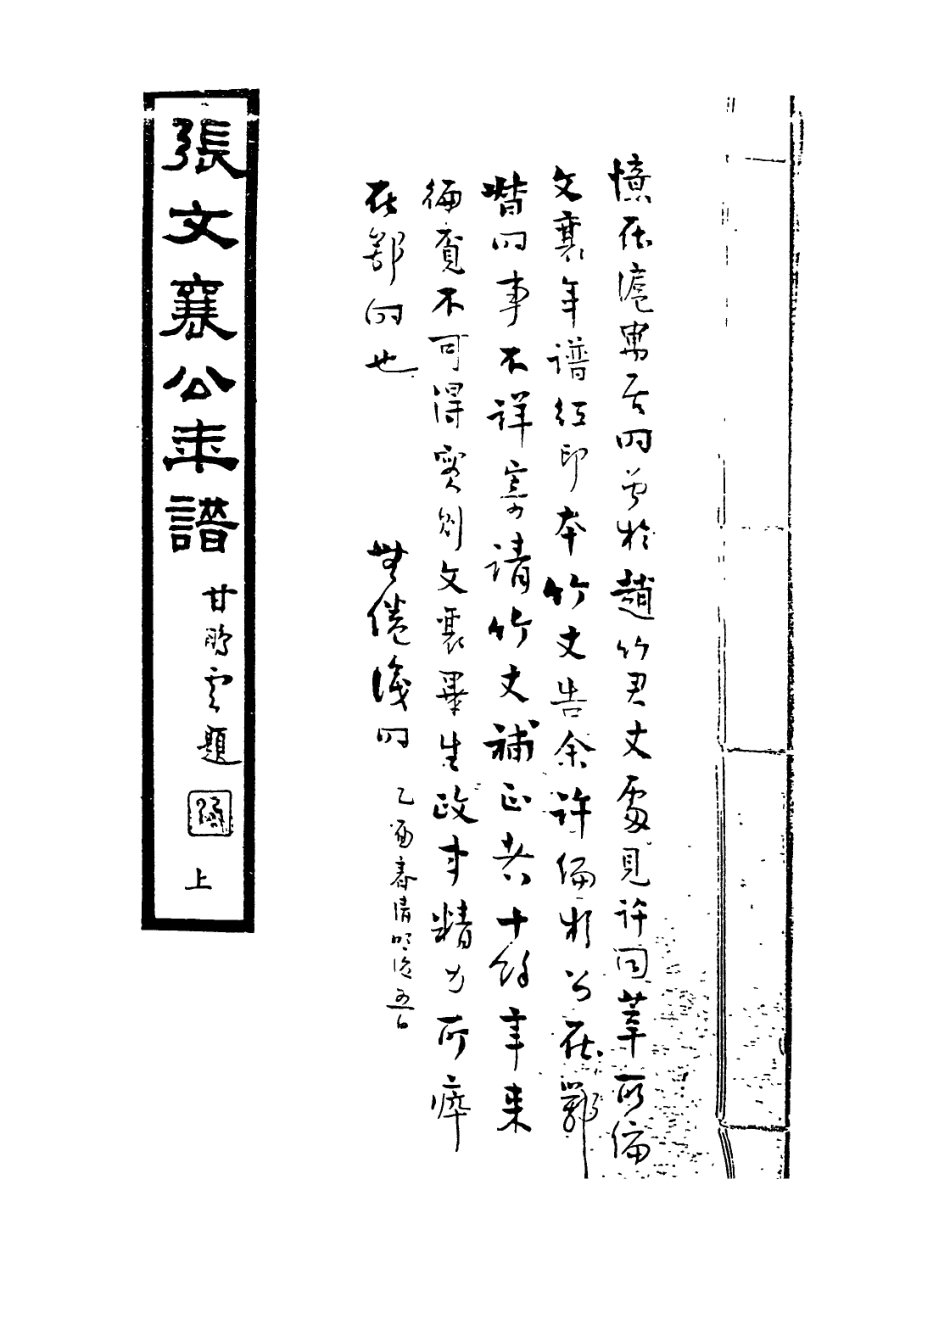 憶在滬寓居時曾於趙竹君丈處見許同莘所編
文襄年譜紅印本竹丈告余許編於公在鄂
時事不詳寄請竹丈補正者十餘年來
徧覓不可得實則文襄畢生政事精力所瘁
在鄂時也
無倦識時乙酉春清明後五日
張文襄公年譜
甘鵬雲題
上